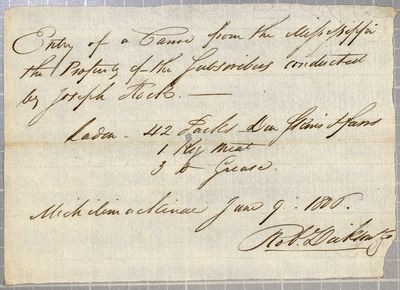 Entry of a Canoe from the Mississippi
the Property of the Subscribers conducted
by Joseph Rock. —
Laden - 42 Packs Deer Skins & Furs
1 Keg Meat
3 do Grease.
Michilimackinac June 9. 1806.
Robt. Dickson